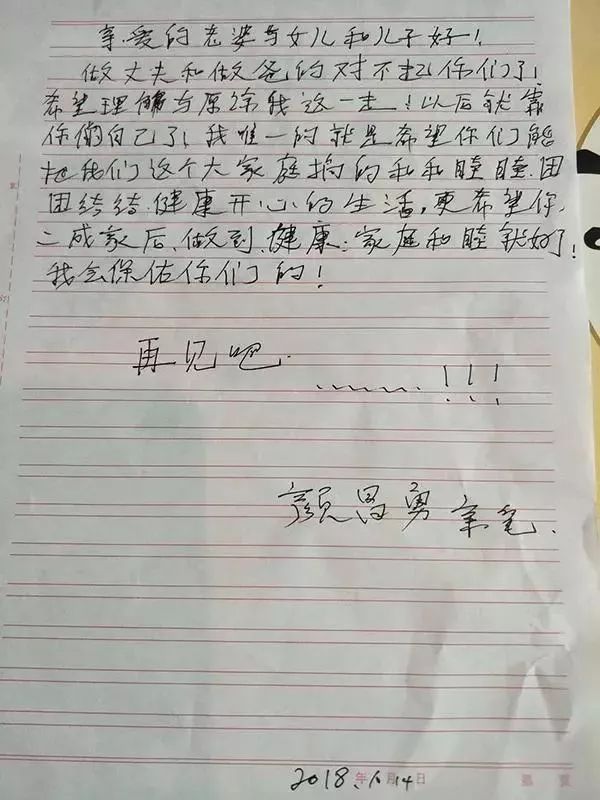 亲爱的老婆与女儿和儿子好！
做丈夫和做爸的对不起你们了！
希望理解与原谅我这一走！以后就靠
你俩自己了！我唯一的就是希望你们能
把我们这个大家庭搞的和和睦睦.团
团结结.健康开心的生活，更希望你
二成家后、做到、健康；家庭和睦就好了！
我会保佑你们的！
再见吧.
……！！！
颜昌勇 亲笔.
2018年6月14日